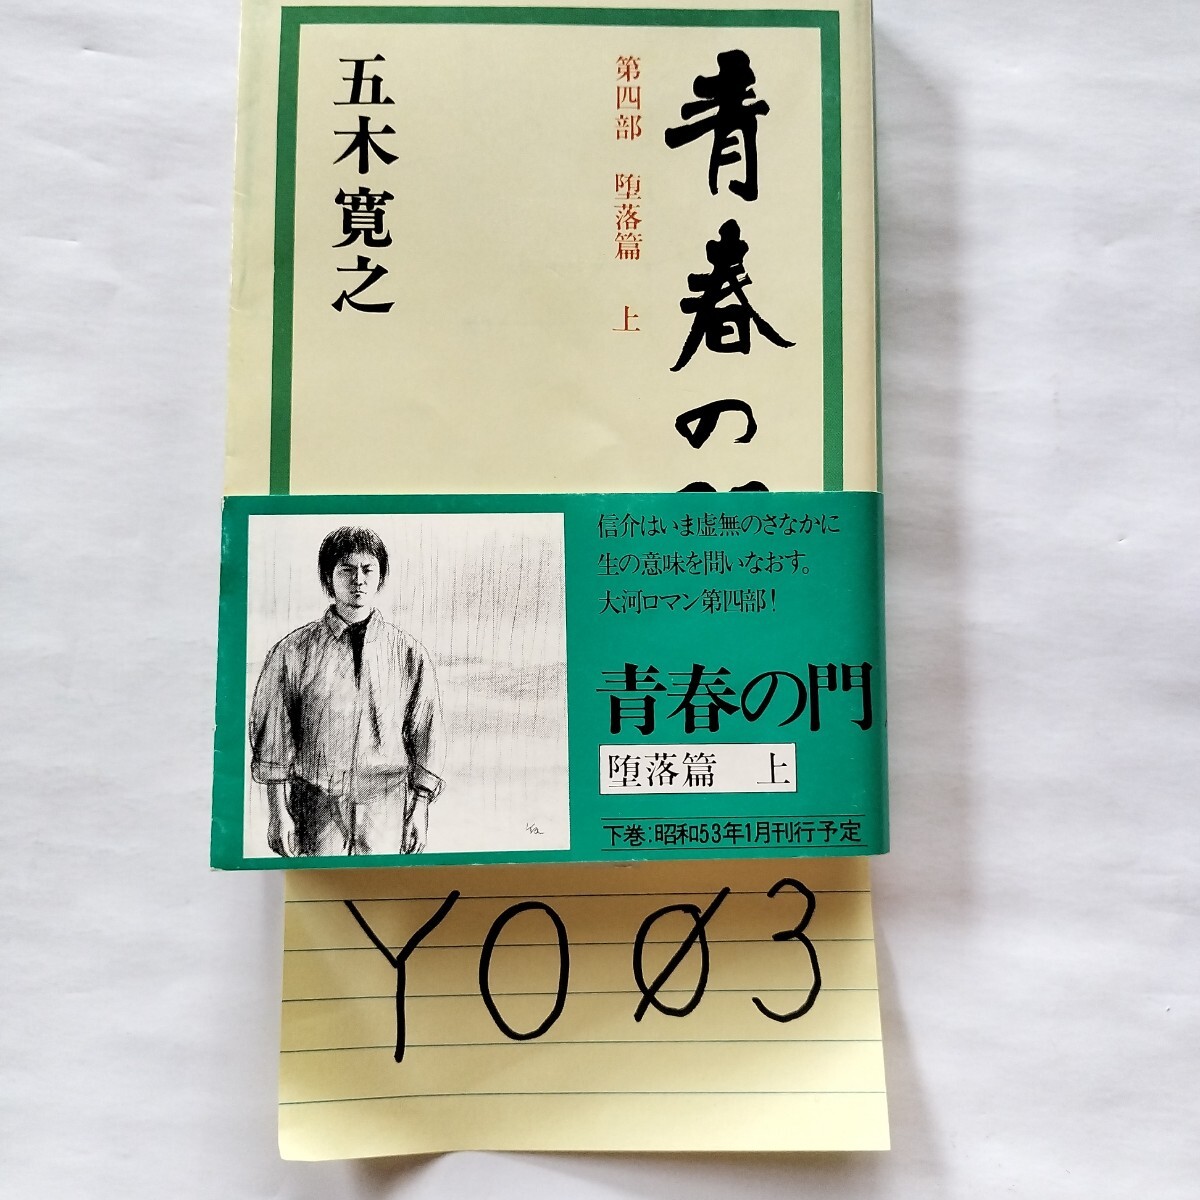 青春の門
第四部 堕落篇 上
五木寛之
信介はいま虚無のさなかに
生の意味を問いなおす。
大河ロマン第四部!
青春の門
堕落篇 上
下巻:昭和53年1月刊行予定
YOØ3